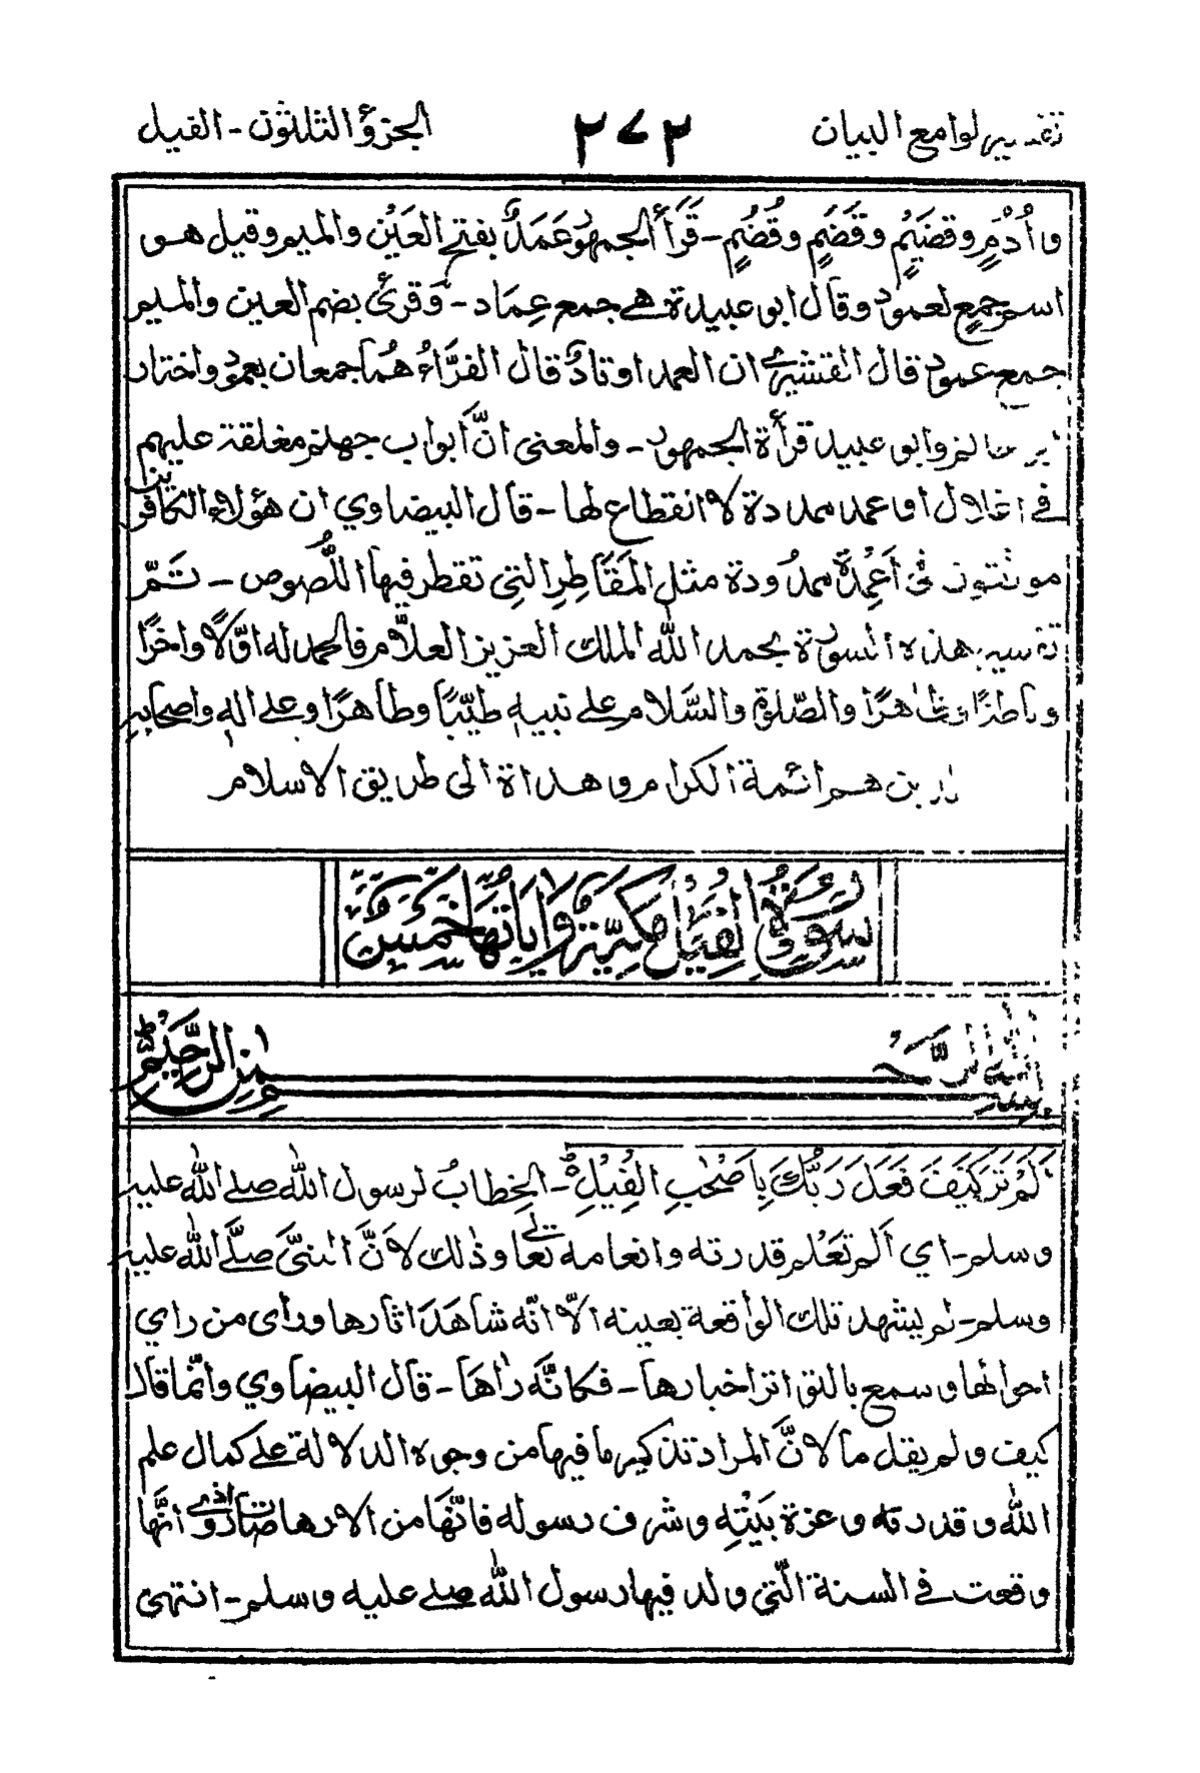 تفسير لوامع البيان
٢٧٢
الجزؤ الثلثون - الفيل
وأُدُمٍ وقضيم وقَضَمٍ وقُضُمٍ - قَرَأ الجمهور عَمَدٌ بفتح العَيْن والميم وقيل هو
اسم جمع لعمود وقال ابو عبيدة هي جمع عِماد - وَقرئ بضم العين والميم
جمع عمود قال القشيري ان العمد اوتادٌ قال الفَرَّاءُ هُما جمعان بعمود واختار
ابو حاتم وابو عبيد قرأة الجمهور - والمعنى انَّ أبواب جهنم مغلقة عليهم
في اغلال او عمد ممددة لا انقطاع لها - قال البيضاوي ان هؤلاء الكافرين
موثقون في أَعْمِدَةٌ ممدُودة مثل المَقَاطِرِ التِي تقطر فيها اللُّصوص - تَمّ
تفسير هذه السورة بحمد الله الملك العزيز العلاّم فالحمد له اوّلًا واخرًا
وباطنًا وظاهرًا والصّلوة والسَّلام على نبيه طيّبًا وطاهرًا وعلى اله واصحابه
الذين هم ائمة الكرام وهداة الى طريق الاسلام
سورة الفيل مكية وايَاتُهَا خَمس
بسم الله الرَّحمنِ الرَّحيْمِ
اَلَمْ تَرَ كَيْفَ فَعَلَ رَبُّكَ بِاَصْحٰبِ الفِيْلِ - الخِطابُ لرسول الله صلى الله عليه
وسلم - اي اَلم تعْلم قدرته وانعامه تعالى وذلك لاَنَّ النبىَّ صلَّى الله عليه
وسلم - لم يشهد تلك الواقعة بعينه الاّ انّه شاهَدَ اثارها وراى من راي
احوالها وسمع بالتواتر اخبارها - فكانَّه رَاهَا - قال البيضاوي وانّما قال
كيف ولم يقل ما لانَّ المراد تذكير ما فيها من وجوه الدلالة على كمال علم
الله وقدرته وعزة بَيْتِه وشرف رسوله فانّهَا من الارهاصات اذ روي انَّها
وقعت في السنة الّتي ولد فيها رسول الله صلى عليه وسلم - انتهى